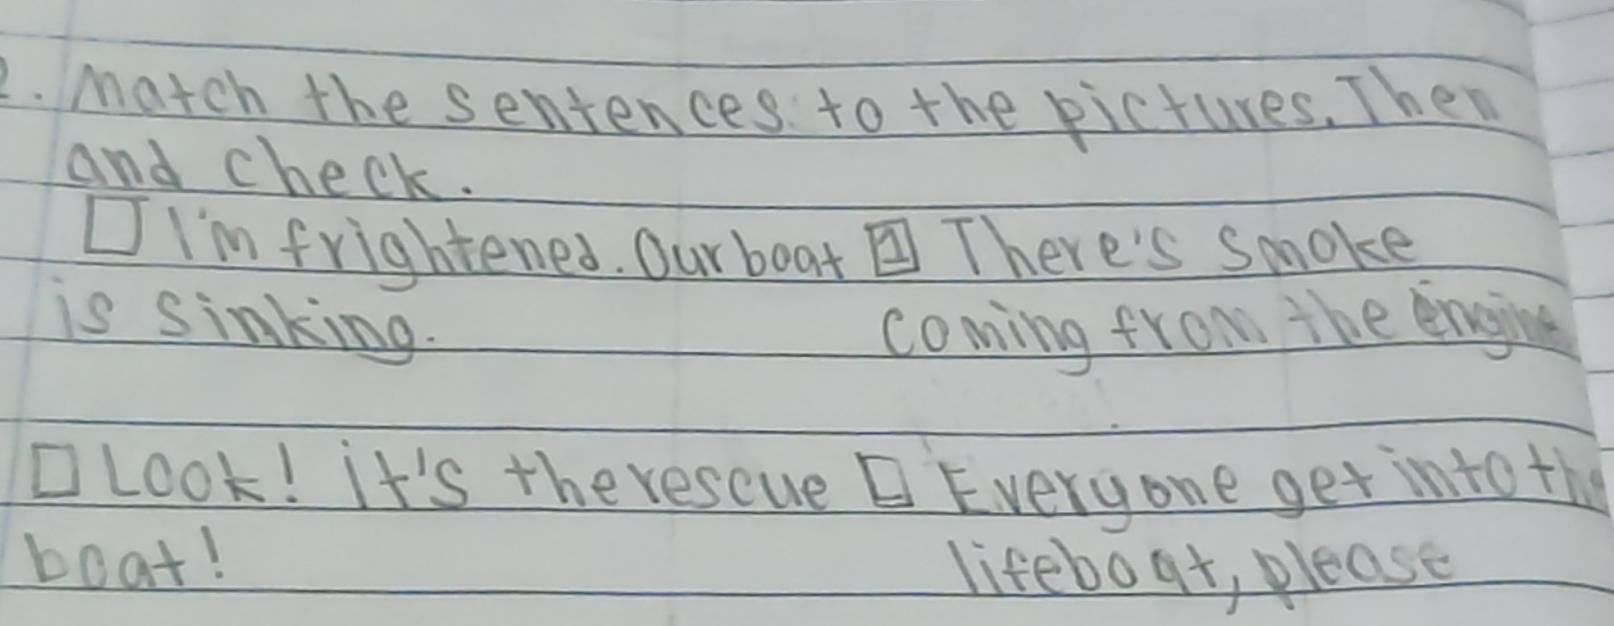 2. Match the sentences to the pictures. Then
and check.
□ I'm frightened. Our boat 1 There's smoke
is sinking. coming from the engine
□ Look! it's the rescue □ Everyone get into the
boat! lifeboat, please